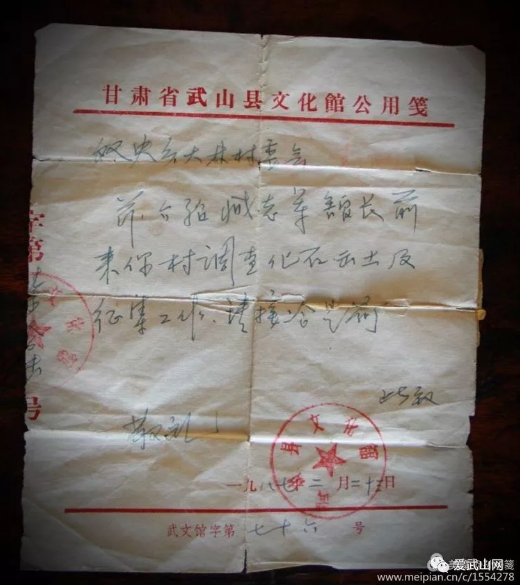 甘肃省武山县文化館公用笺
大林村委会
兹介绍志军館长前
来你村调查化石出土及
征集工作，请接洽是荷
此致
敬礼！
一九八七年二月二十三日
武文馆字第七十六号
字第
号
爱武山网
www.meipian.cn/c/1554278